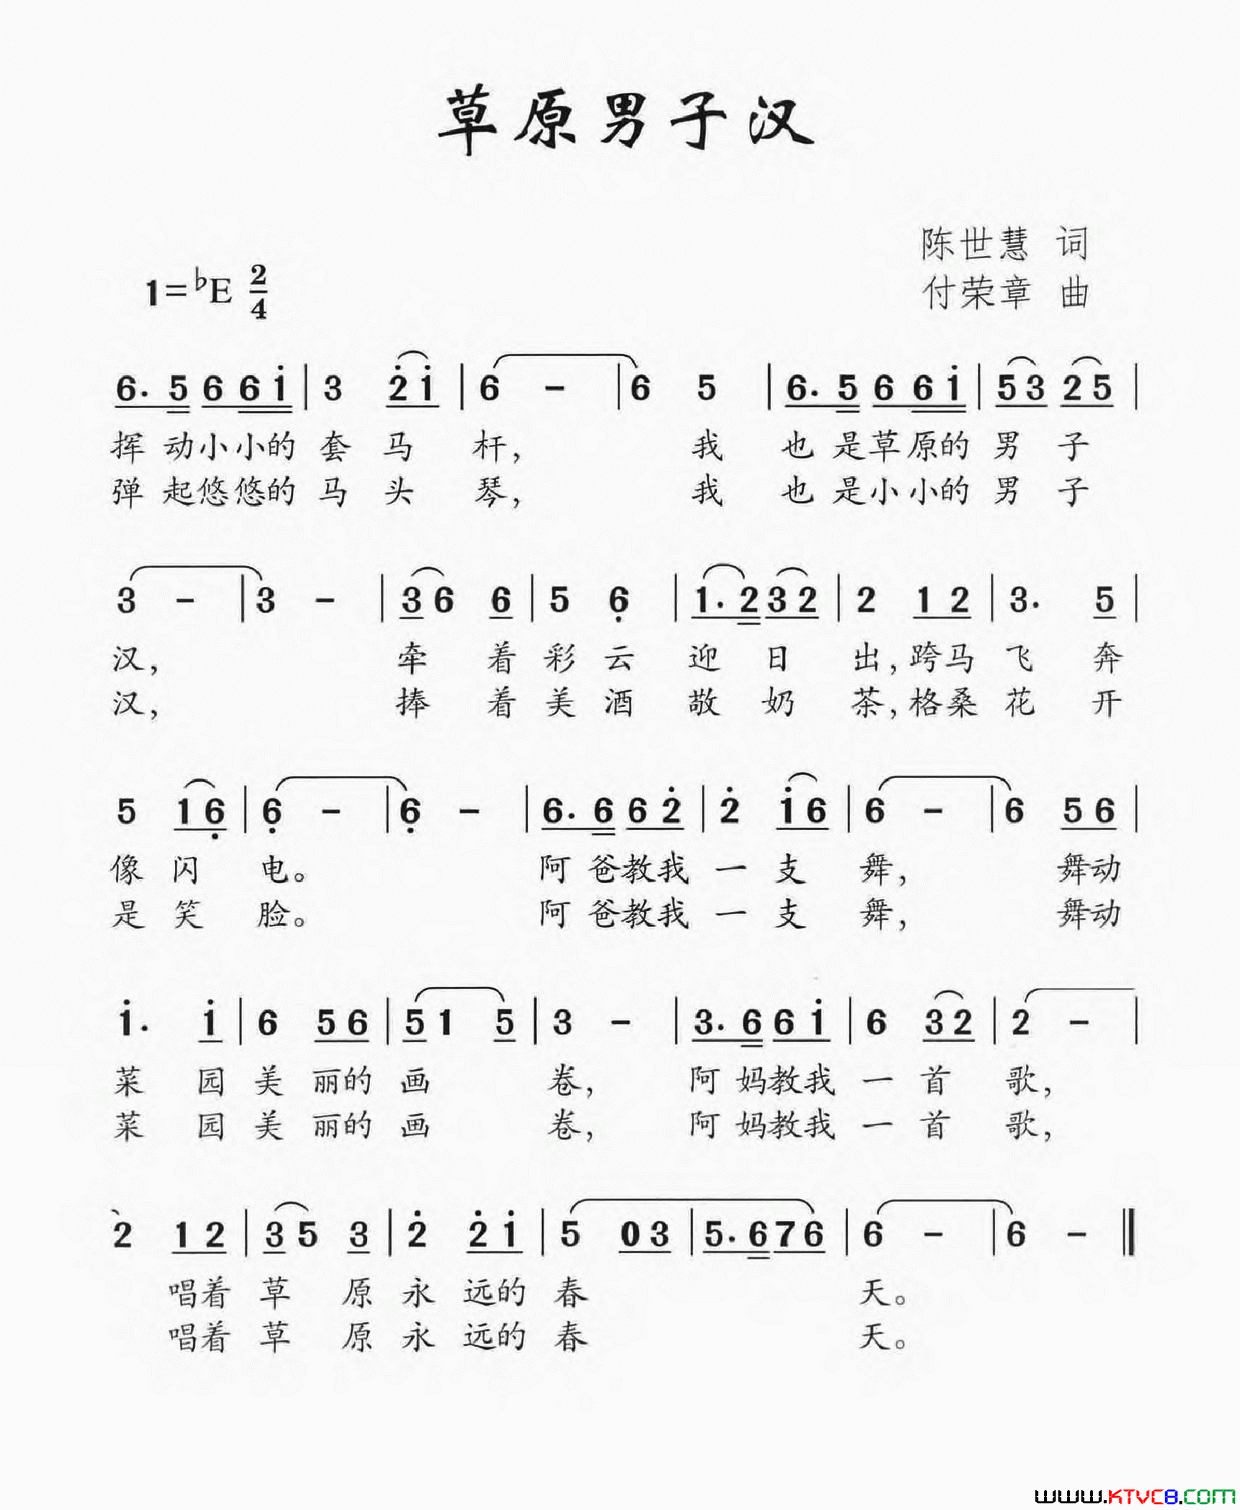 草原男子汉
陈世慧 词
1=♭E 2/4
付荣章 曲
6. 5 6 6 i | 3 2̇ i | 6 - | 6 5 | 6. 5 6 6 i | 5 3 2 5 |
挥 动小小的 套 马 杆, 我 也 是草原的 男 子
弹 起悠悠的 马 头 琴, 我 也 是小小的 男 子
3 - | 3 - | 3 6 6 | 5 6̣ | 1. 2 3 2 | 2 1 2 | 3. 5 |
汉, 牵 着 彩 云 迎 日 出, 跨马 飞 奔
汉, 捧 着 美 酒 敬 奶 茶, 格桑 花 开
5 1 6̣ | 6̣ - | 6̣ - | 6. 6 6 2̇ | 2̇ i 6 | 6 - | 6 5 6 |
像 闪 电。 阿 爸教我 一 支 舞, 舞动
是 笑 脸。 阿 爸教我 一 支 舞, 舞动
i. i | 6 5 6 | 5 1 5 | 3 - | 3. 6 6 i | 6 3 2 | 2 - |
菜 园 美 丽的 画 卷, 阿 妈教我 一 首 歌,
菜 园 美 丽的 画 卷, 阿 妈教我 一 首 歌,
2 1 2 | 3 5 3 | 2̇ 2̇ i | 5 0 3 | 5. 6 7 6 | 6 - | 6 - ‖
唱着 草 原 永 远的 春 天。
唱着 草 原 永 远的 春 天。
www.KTVC8.com